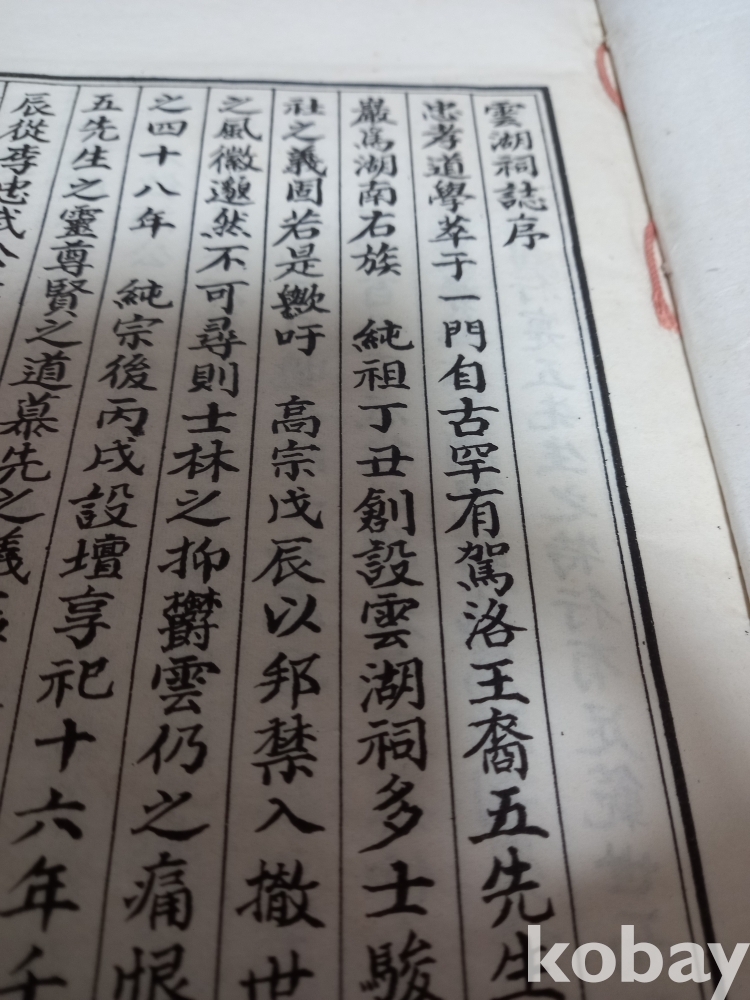 雲湖祠誌序
忠孝道學萃于一門自古罕有駕洛王裔五先生
嚴爲湖南右族 純祖丁丑創設雲湖祠多士駿
社之義固若是歟吁 高宗戊辰以邦禁入撤世
之風徽邈然不可尋則士林之抑鬱雲仍之痛恨
之四十八年 純宗後丙戌設壇享祀十六年壬
五先生之靈尊賢之道慕先之義
辰從李忠武公
kobay